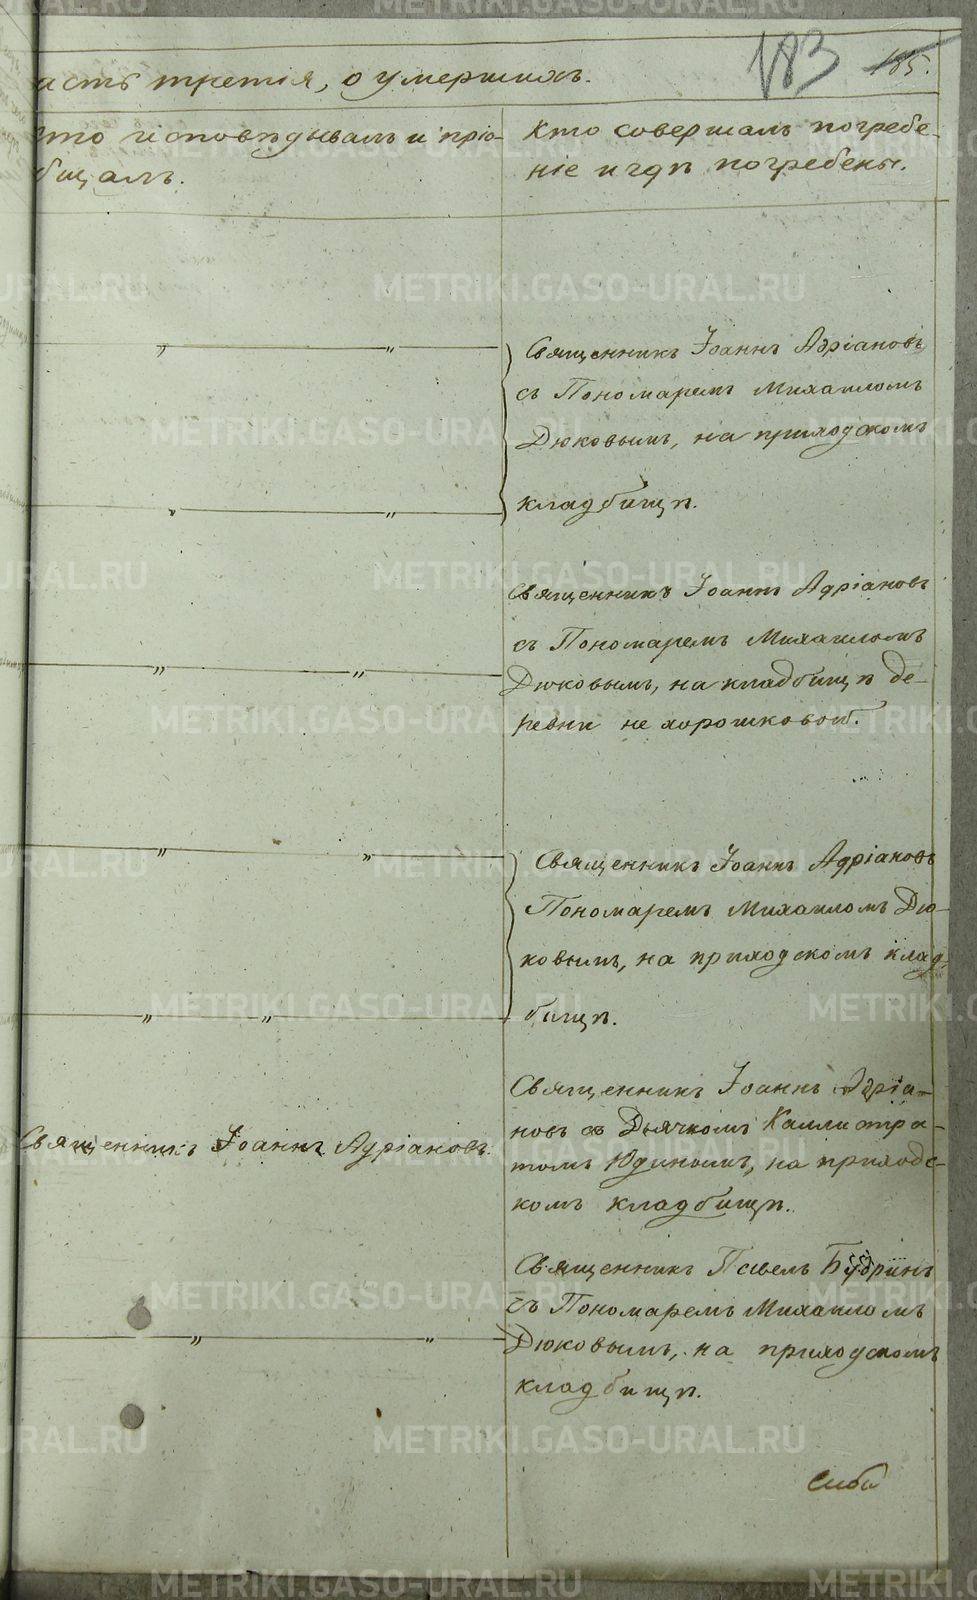 асть третія, о умершихъ.
183
185.
кто исповѣдывалъ и прІо-
бщалъ.
Кто совершалъ погребе-
ніе и гдѣ погребены.
Священникъ Іоаннъ Адріановъ
съ Пономаремъ Михаиломъ
Дюковымъ, на приходскомъ
кладбищѣ.
Священникъ Іоаннъ Адріановъ
съ Пономаремъ Михаиломъ
Дюковымъ, на кладбищѣ де-
ревни нехорошковой.
Священникъ Іоаннъ Адріановъ
Пономаремъ Михаиломъ Дю-
ковымъ, на приходскомъ клад-
бищѣ.
Священникъ Іоаннъ Адріановъ.
Священникъ Іоаннъ Адріа-
новъ съ Дьячкомъ Каллистра-
томъ Юдинымъ, на приходс-
комъ кладбищѣ.
Священникъ Павелъ Будринъ
съ Пономаремъ Михаиломъ
Дюковымъ, на приходскомъ
кладбищѣ.
METRIKI.GASO-URAL.RU